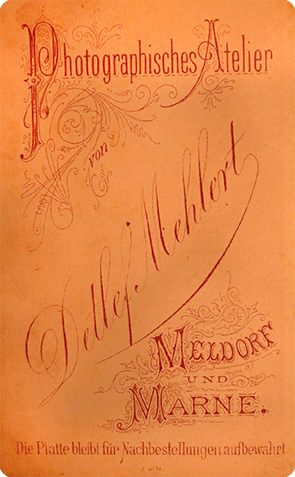 Photographisches Atelier
von
Detlef Mehlert
MELDORF
UND
MARNE.
Die Platte bleibt für Nachbestellungen aufbewahrt